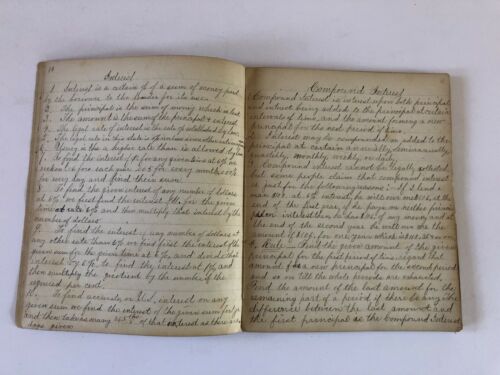 14
Interest
1. Interest is a certain % of a sum of money paid
by the borrower to the lender for its use.
2. The principal is the sum of money which is lent
3. The amount is the sum of the principal & interest
4. The legal rate of interest is the rate established by law
5. The legal rate in this state is
6. Usury is the a higher rate than is allowed by law
7. To find the interest of $1 for any given time at 6%
for each mo. for every
for every day and find their sum.
8. To find the given interest of any number of dollars
at 6% we first find the interest of $1 for the given
time at rate 6% and then multiply that interest by the
number of dollars.
9. To find the interest of any number of dollars at
any other rate than 6% we find first the interest of the
given sum for the given time at 6%, and divide that
interest by 6 to find the interest at 1% and
then multiply the quotient by the number of the
required per cent.
10. To find accurate, or U.S., interest on any
given sum we find the interest of the given sum for
and then take as many of that interest as there are
days given
Compound Interest
Compound Interest is interest upon both principal
and interest being added to the principal at certain
intervals of time, and the amount forming a new
principal for the next period of time.
Interest may be compounded or added to the
principal at certain annually, semi-annually,
quarterly, monthly, weekly, or daily.
Compound interest cannot be legally collected
but some people claim that compound interest
is just for the following reasons:- If I lend a
man $100. at 6% interest, he will owe me $106. at the
end of the first year, if he pays me neither principal
nor interest then he has $106. of my money and at
the end of the second year he will owe me the
amount of $106. for one year which is
Rule:- Find the given amount of the given
principal for the first period of time, regard that
amount as a new principal for the second period
and so on till the whole periods are exhausted.
Find the amount of the last amount for the
remaining part of a period if there be any. The
difference between the last amount and
the first principal is the Compound Interest